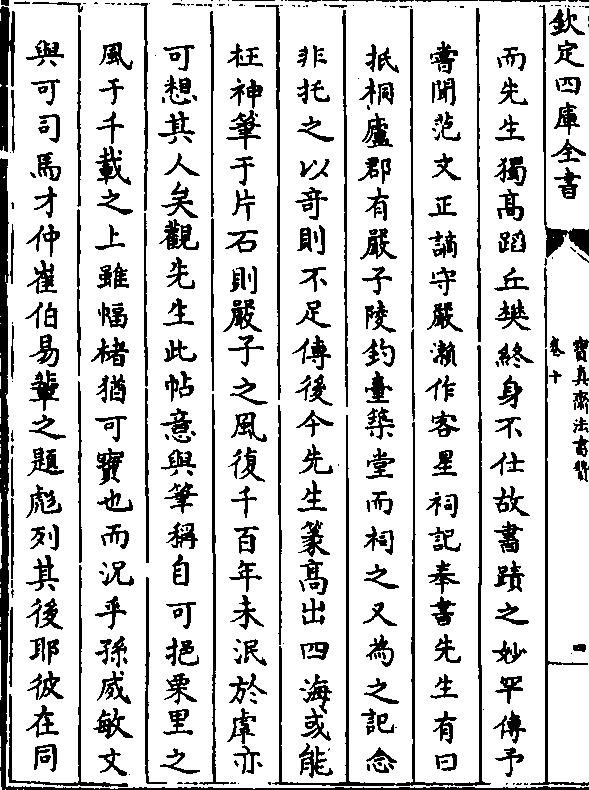 欽定四庫全書
寳真齋法書贊
卷十
四
而先生獨髙蹈丘樊終身不仕故書蹟之妙罕傳予
嘗聞范文正謫守嚴瀬作客星祠記奉書先生有曰
抵桐廬郡有嚴子陵釣臺築堂而祠之又為之記念
非托之以竒則不足傳後今先生篆髙出四海或能
枉神筆于片石則嚴子之風復千百年未泯於虖亦
可想其人矣觀先生此帖意與筆稱自可挹栗里之
風于千載之上雖幅楮猶可寶也而況乎孫威敏文
與可司馬才仲崔伯易軰之題彪列其後耶彼在同